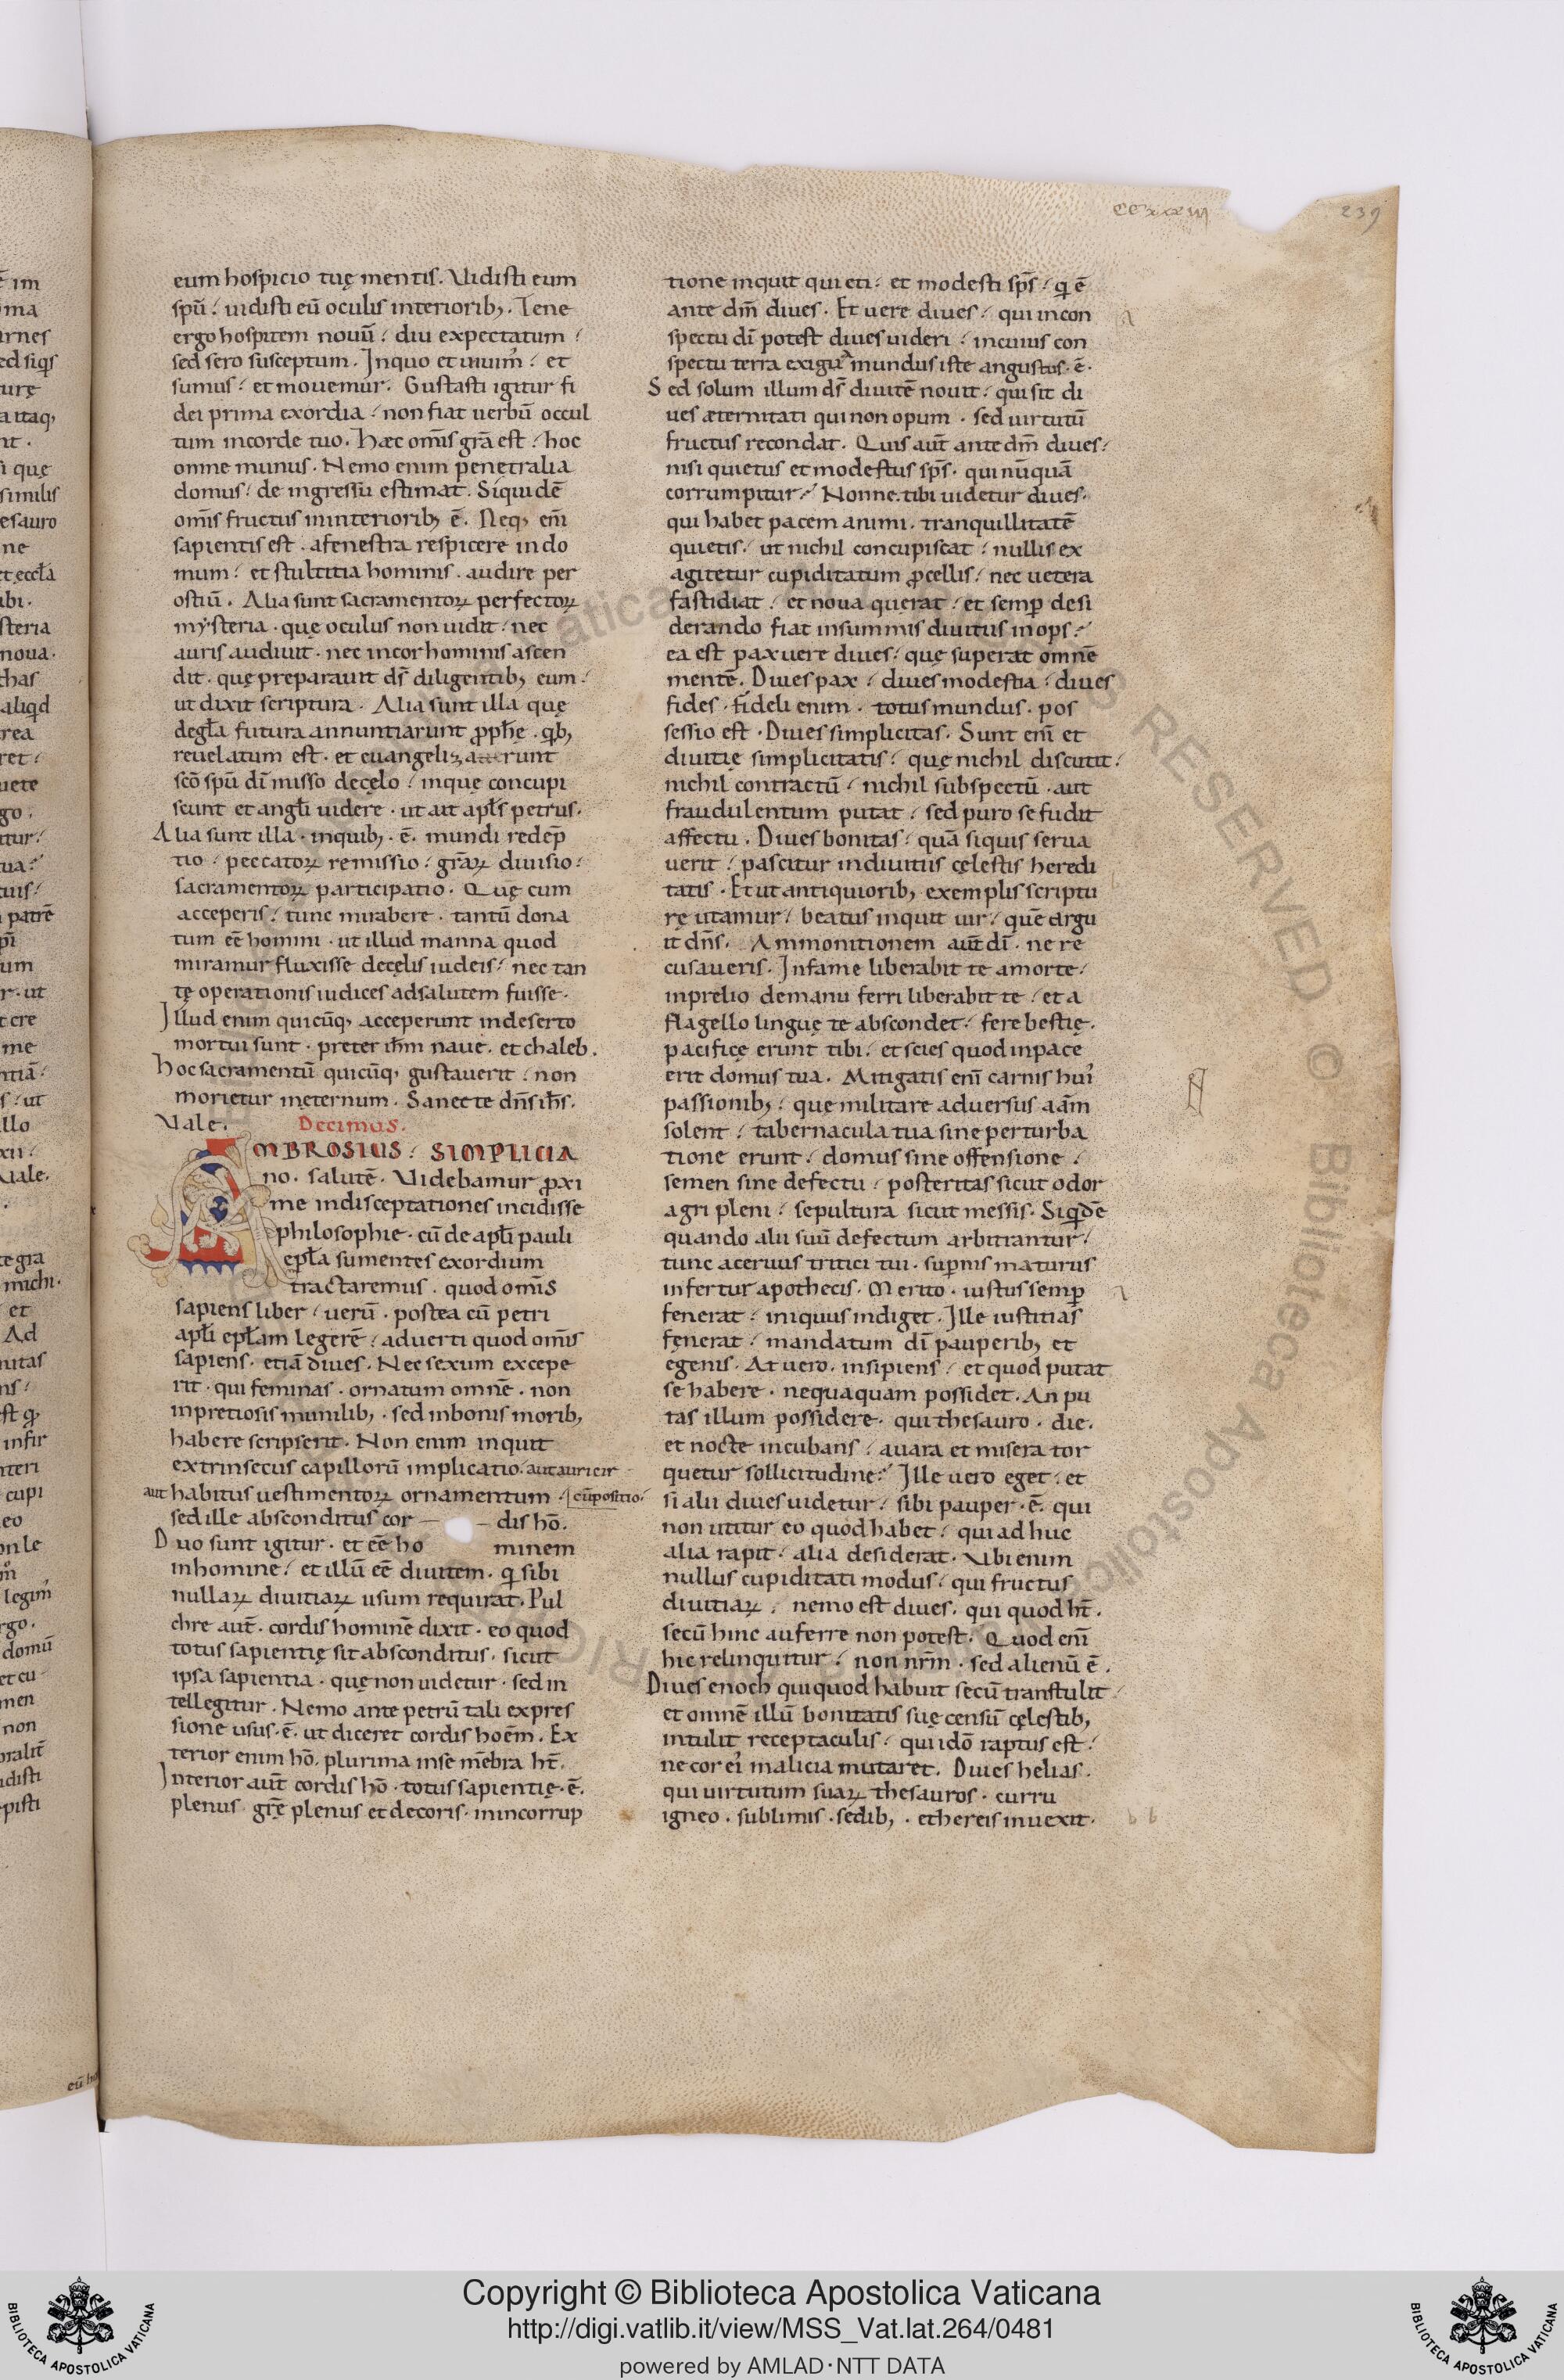 ccxxxviiij
239
eum hospicio tuę mentis. Vidisti eum
spū? uidisti eū oculis interiorib;. Tene
ergo hospitem nouū? diu expectatum?
sed sero susceptum. Inquo et uiuim᷒? et
sumus? et mouemur. Gustasti igitur fi
dei prima exordia? non fiat uerbū occul
tum incorde tuo. Hæc om̄is grā est? hoc
omne munus. Nemo enim penetralia
domus? de ingressu estimat. Siquidē
om̄is fructus ininteriorib; ē. Neq; eni̅
sapientis est. afenestra respicere indo
mum? et stultitia hominis. audire per
ostiū. Alia sunt sacramentoꝝ perfectoꝝ
mysteria. quę oculus non uidit? nec
auris audiuit. nec incor hominis ascen
dit. quę preparauit ds̄ diligentib; eum?
ut dixit scriptura. Alia sunt illa quę
degłā futura annuntiarunt ꝓph̄ę. qb;
reuelatum est. et euangelizauerunt
scō spū dī misso decęlo? inquę concupi
scunt et angłi uidere. ut ait apłs petrus.
Alia sunt illa. inquib;. ē. mundi redēp
tio? peccatoꝝ remissio? grāꝝ diuisio?
sacramentoꝝ participatio. Quę cum
acceperis? tunc mirabere. tantū dona
tum eē homini. ut illud manna quod
miramur fluxisse decęlis iudeis? nec tan
tę operationis iudices adsalutem fuisse.
Illud enim quicūq; acceperunt indeserto
mortui sunt. preter ih̄m naue. et chaleb.
Hoc sacramentū quicūq; gustauerit? non
morietur inęternum. Sanet te dn̄s ih̄s.
Vale. Decimus.
AMBROSIUS? SIMPLICIA
no. salutē. Videbamur ꝓxi
me indisceptationes incidisse
philosophie. cū de apłi pauli
epła sumentes exordium
tractaremus. quod om̄is
sapiens liber? uerū. postea cū petri
apłi epłam legerē? aduerti quod om̄is
sapiens. etiā diues. Nec sexum excepe
rit. qui feminas. ornatum omnē. non
inpretiosis munilib;. sed inbonis morib;
habere scripserit. Non enim inquit
extrinsecus capillorū implicatio. aut auri cir
aut habitus uestimentoꝝ ornamentum. cūpositio?
sed ille absconditus cor — — dis hō.
Duo sunt igitur. et eē ho minem
inhomine? et illū eē diuitem. q̄ sibi
nullaꝝ diuitiaꝝ usum requirat. Pul
chre aut̄. cordis hominē dixit. eo quod
totus sapientię sit absconditus. sicut
ipsa sapientia. quę non uidetur. sed in
tellegitur. Nemo ante petrū tali expres
sione usus. ē. ut diceret cordis hoēm. Ex
terior enim hō. plurima inse mēbra ht̄.
Interior aut̄ cordis hō. totus sapientię. ē.
plenus grę̄ plenus et decoris. inincorrup
tione inquit quieti? et modesti sp̄s? q̄ ē
ante dm̄ diues. Et uere diues? qui incon
spectu dī potest diues uideri? incuius con
spectu terra exigua mundus iste angustus. ē.
Sed solum illum ds̄ diuitē nouit? qui sit di
ues æternitati qui non opum. sed uirtutū
fructus recondat. Quis aut̄ ante dm̄ diues?
nisi quietus et modestus sp̄s. qui nūquā
corrumpitur? Nonne tibi uidetur diues.
qui habet pacem animi. tranquillitatē
quietis? ut nichil concupiscat? nullis ex
agitetur cupiditatum ꝓcellis? nec uetera
fastidiat? et noua quęrat? et semꝑ desi
derando fiat insummis diuitiis inops?
ea est pax uere diues? quę superat omnē
mentē. Diues pax? diues modestia? diues
fides. fideli enim. totus mundus. pos
sessio est. Diues simplicitas. Sunt eni̅ et
diuitię simplicitatis? quę nichil discutit?
nichil contractū? nichil subspectū. aut
fraudulentum putat? sed puro se fudit
affectu. Diues bonitas? quā siquis serua
uerit? pascitur indiuitiis cęlestis heredi
tatis. Et ut antiquiorib; exemplis scriptu
rę utamur? beatus inquit uir? quē argu
it dn̄s. Ammonitionem aut̄ dī. ne re
cusaueris. Infame liberabit te amorte?
inprelio demanu ferri liberabit te? et a
flagello linguę te abscondet? fere bestię.
pacificę erunt tibi? et scies quod inpace
erit domus tua. Mitigatis eni̅ carnis hui᷒
passionib;? quę militare aduersus aām
solent? tabernacula tua sine perturba
tione erunt? domus sine offensione?
semen sine defectu? posteritas sicut odor
agri pleni? sepultura sicut messis. Siqdē
quando alii suū defectum arbitrantur?
tunc aceruus tritici tui. suꝑnis maturus
infertur apothecis. Merito. iustus semꝑ
fenerat? iniquus indiget. Ille iustitias
fęnerat? mandatum dī pauperib; et
egenis. At uero. insipiens? et quod putat
se habere. nequaquam possidet. An pu
tas illum possidere. qui thesauro. die.
et nocte incubans? auara et misera tor
quetur sollicitudine? Ille uero eget? et
si alii diues uidetur? sibi pauper. ē. qui
non utitur eo quod habet? qui ad huc
alia rapit? alia desiderat. Vbi enim
nullus cupiditati modus? qui fructus
diuitiaꝝ? nemo est diues. qui quod ht̄.
secū hinc auferre non potest. Quod eni̅
hic relinquitur? non nr̄m. sed alienū ē.
Diues enoch qui quod habuit secū transtulit?
et omnē illū bonitatis suę censū cęlestib;
intulit receptaculis? qui idō raptus est?
ne cor ei᷒ malicia mutaret. Diues helias.
qui uirtutum suaꝝ thesauros. curru
igneo. sublimis. sedib;. ethereis inuexit.
Copyright © Biblioteca Apostolica Vaticana
http://digi.vatlib.it/view/MSS_Vat.lat.264/0481
powered by AMLAD·NTT DATA